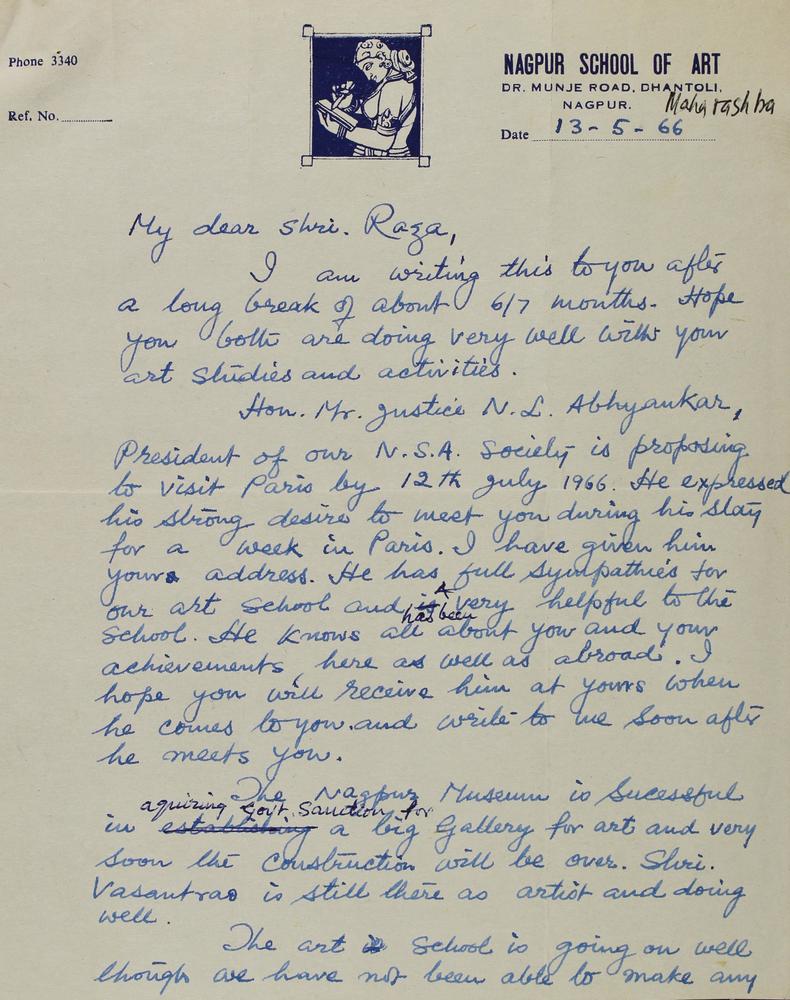 Phone 3340
Ref. No.
NAGPUR SCHOOL OF ART
DR. MUNJE ROAD, DHANTOLI,
NAGPUR. Maharashtra
Date 13-5-66
My dear Shri. Raza,
I am writing this to you after
a long break of about 6/7 months. Hope
you both are doing very well with your
art studies and activities.
Hon. Mr. Justice N. L. Abhyankar,
President of our N.S.A. Society is proposing
to visit Paris by 12th July 1966. He expressed
his strong desire to meet you during his stay
for a week in Paris. I have given him
yours address. He has full sympathies for
our art school and is has been very helpful to the
school. He knows all about you and your
achievements here as well as abroad. I
hope you will receive him at yours when
he comes to you. and write to me soon after
he meets you.
The Nagpur Museum is sucessful
in establishing aquiring Govt. Sanction for a big Gallery for art and very
soon the construction will be over. Shri.
Vasantrao is still there as artist and doing
well.
The art is school is going on well
though we have not been able to make any